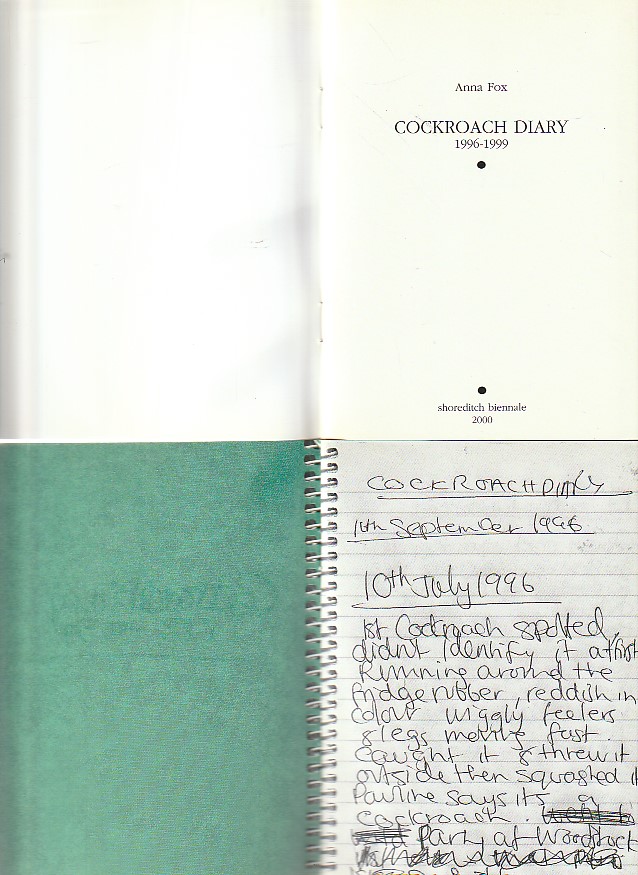 Anna Fox
COCKROACH DIARY
1996-1999
shoreditch biennale
2000
COCKROACH DIARY
10th September 1996
10th July 1996
1st Cockroach spotted,
didnt identify it at first
Running around the
fridge rubber, reddish in
colour wiggly feelers
& legs moving fast.
caught it & threw it
outside then squashed it
Pauline says its a
cockroach.
Party at Woodstock